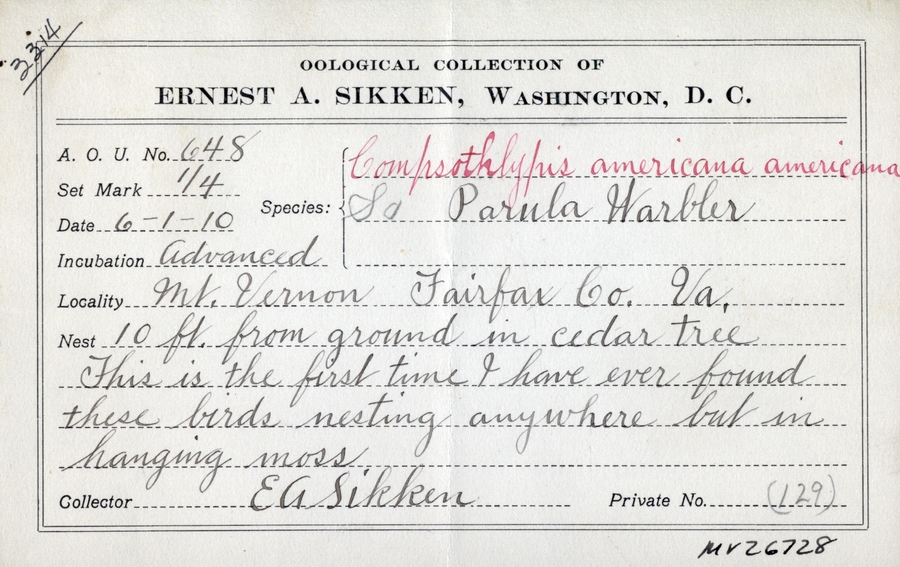 3314
OOLOGICAL COLLECTION OF
ERNEST A. SIKKEN, WASHINGTON, D. C.
A. O. U. No. 648
Set Mark 1/4
Date 6-1-10
Incubation Advanced
Species: Compsothlypis americana americana
So Parula Warbler
Locality Mt. Vernon Fairfax Co. Va.
Nest 10 ft. from ground in cedar tree
This is the first time I have ever found
these birds nesting anywhere but in
hanging moss
Collector EA Sikken Private No. (129)
MV26728